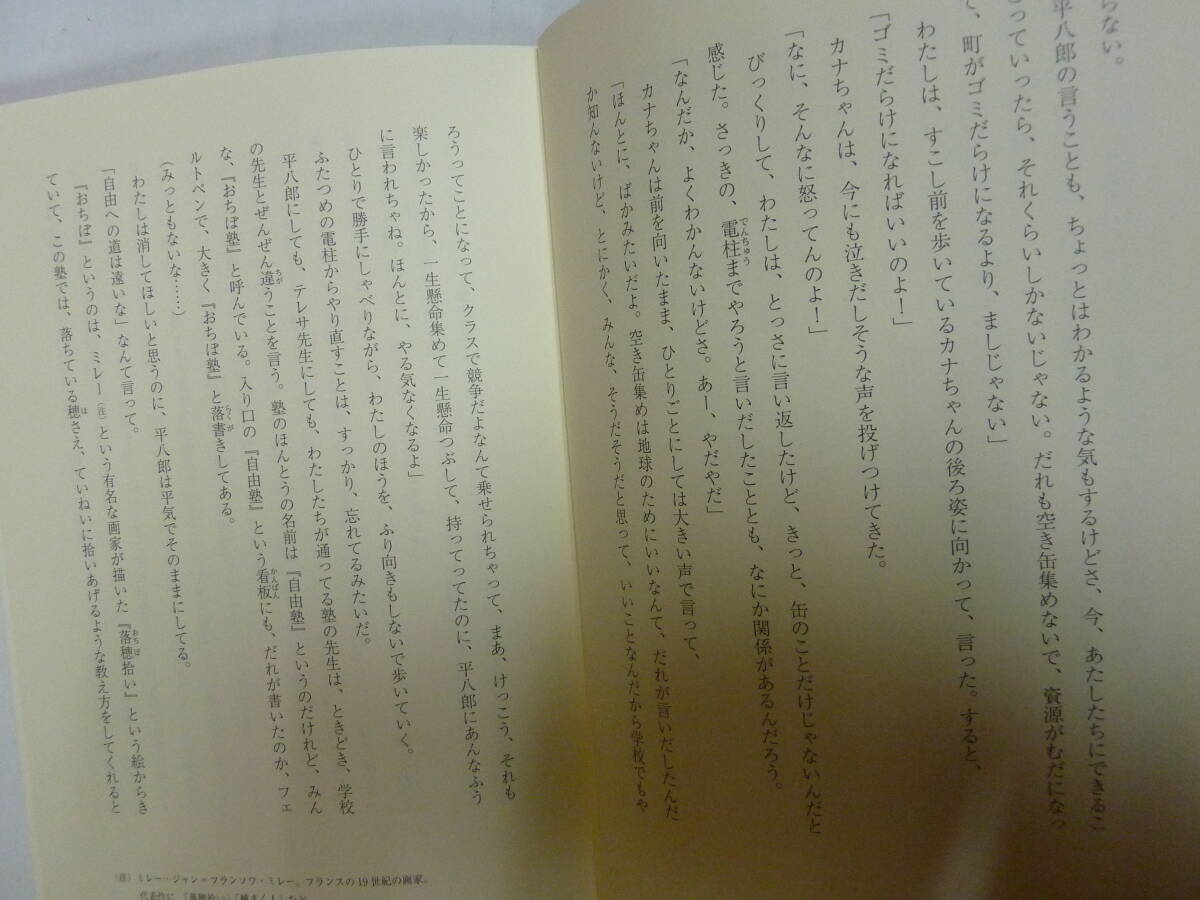 らない。
平八郎の言うことも、ちょっとはわかるような気もするけどさ、今、あたしたちにできるこ
っていったら、それくらいしかないじゃない。だれも空き缶集めないで、資源がむだになっ
て、町がゴミだらけになるより、ましじゃない」
わたしは、すこし前を歩いているカナちゃんの後ろ姿に向かって、言った。すると、
「ゴミだらけになればいいのよ！」
カナちゃんは、今にも泣きだしそうな声を投げつけてきた。
「なに、そんなに怒ってんのよ！」
びっくりして、わたしは、とっさに言い返したけど、きっと、缶のことだけじゃないんだと
感じた。さっきの、電柱までやろうと言いだしたこととも、なにか関係があるんだろう。
でんちゅう
「なんだか、よくわかんないけどさ。あー、やだやだ」
カナちゃんは前を向いたまま、ひとりごとにしては大きい声で言って、
「ほんとに、ばかみたいだよ。空き缶集めは地球のためにいいなんて、だれが言いだしたんだ
か知んないけど、とにかく、みんな、そうだそうだと思って、いいことなんだから学校でもや
ろうってことになって、クラスで競争だよなんて乗せられちゃって、まあ、けっこう、それも
楽しかったから、一生懸命集めて一生懸命つぶして、持ってってたのに、平八郎にあんなふう
に言われちゃね。ほんとに、やる気なくなるよ」
ひとりで勝手にしゃべりながら、わたしのほうを、ふり向きもしないで歩いていく。
ふたつめの電柱からやり直すことは、すっかり、忘れてるみたいだ。
平八郎にしても、テレサ先生にしても、わたしたちが通ってる塾の先生は、ときどき、学校
の先生とぜんぜん違うことを言う。塾のほんとうの名前は『自由塾』というのだけれど、みん
ちが
な、『おちぼ塾』と呼んでいる。入り口の『自由塾』という看板にも、だれが書いたのか、フェ
かんばん
ルトペンで、大きく『おちぼ塾』と落書きしてある。
らくが
（みっともないな……）
わたしは消してほしいと思うのに、平八郎は平気でそのままにしてる。
「自由への道は遠いな」なんて言って。
『おちぼ』というのは、ミレー（注）という有名な画家が描いた『落穂拾い』という絵からき
おちぼ
ていて、この塾では、落ちている穂さえ、ていねいに拾いあげるような教え方をしてくれると
ほ
（注）ミレー…ジャン＝フランソワ・ミレー。フランスの19世紀の画家。
代表作に「落穂拾い」「種まく人」など